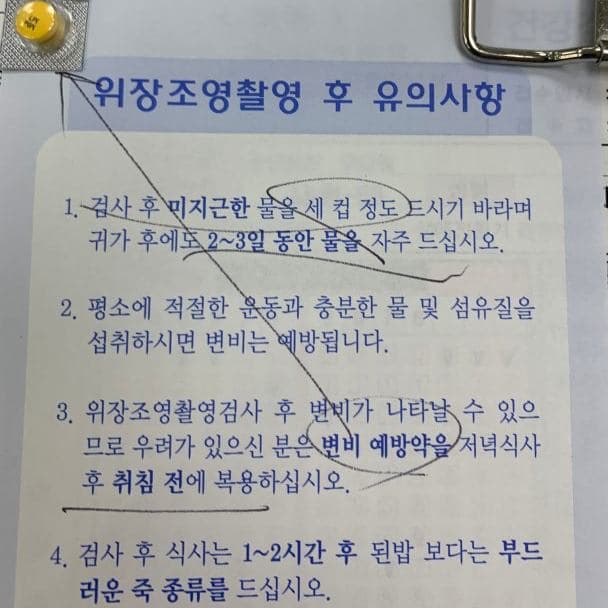 위장조영촬영 후 유의사항
1. 검사 후 미지근한 물을 세 컵 정도 드시기 바라며
귀가 후에도 2~3일 동안 물을 자주 드십시오.
2. 평소에 적절한 운동과 충분한 물 및 섬유질을
섭취하시면 변비는 예방됩니다.
3. 위장조영촬영검사 후 변비가 나타날 수 있으
므로 우려가 있으신 분은 변비 예방약을 저녁식사
후 취침 전에 복용하십시오.
4. 검사 후 식사는 1~2시간 후 된밥 보다는 부드
러운 죽 종류를 드십시오.